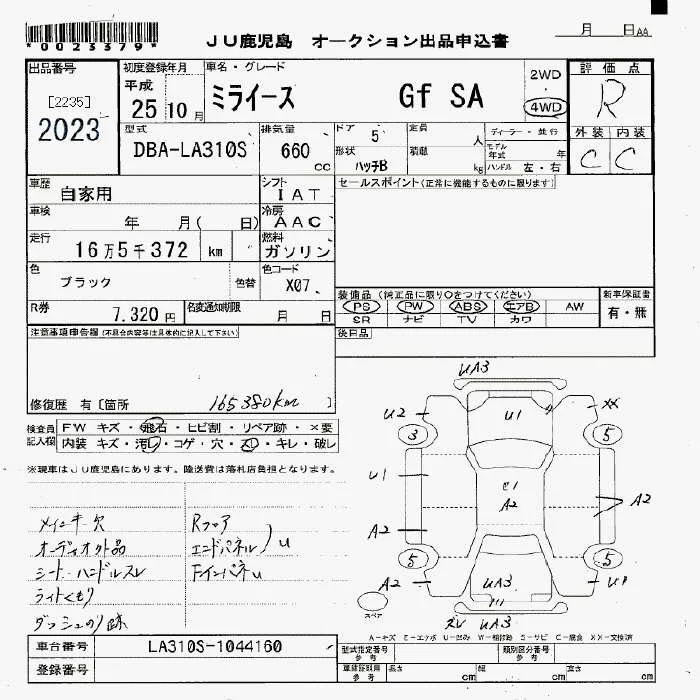 *0023379*
JU鹿児島 オークション出品申込書
月 日AA
出品番号
[2235]
2023
初度登録年月
平成
25 10 月
車名・グレード
ミライース Gf SA
2WD
4WD
評価点
R
型式
DBA-LA310S
排気量
660 cc
ドア 5
形状 ハッチB
定員 人
積載 kg
ディーラー・並行
モデル年式 年
ハンドル 左・右
外装 内装
C C
車歴
自家用
シフト
IAT
セールスポイント(正常に機能するものに限ります)
車検
年 月( 日)
冷房
AAC
走行
16万5千372 km
燃料
ガソリン
色
ブラック
色替
色コード
X07
R券
7.320 円
名変通知期限
月 日
装備品(純正品に限り○をつけてください)
PS PW ABS エアB AW
SR ナビ TV カワ
新車保証書
有・無
後日品
注意事項申告欄(不具合内容等は具体的に記入して下さい)
修復歴 有〔箇所 165380km 〕
検査員記入欄
FW キズ・飛石・ヒビ割・リペア跡・×要
内装 キズ・汚レ・コゲ・穴・スレ・キレ・破レ
※現車はJU鹿児島にあります。陸送費は落札店負担となります。
メインキ欠
オーディオ外品
シート・ハンドルスレ
ライトくもり
ダッシュのり跡
Rフロア
エンドパネル U
FインパネU
UA3
U2
U1
XX
3
5
U1
A2
A2
A2
5
5
A2
UA3
U1
UA3
スペア
A-キズ E-エクボ U-凹み W-補修跡 S-サビ C-腐食 XX-交換済
車台番号
LA310S-1044160
登録番号
型式指定番号
参考
類別区分番号
参考
車体証明
参考
長さ cm
幅 cm
高さ cm